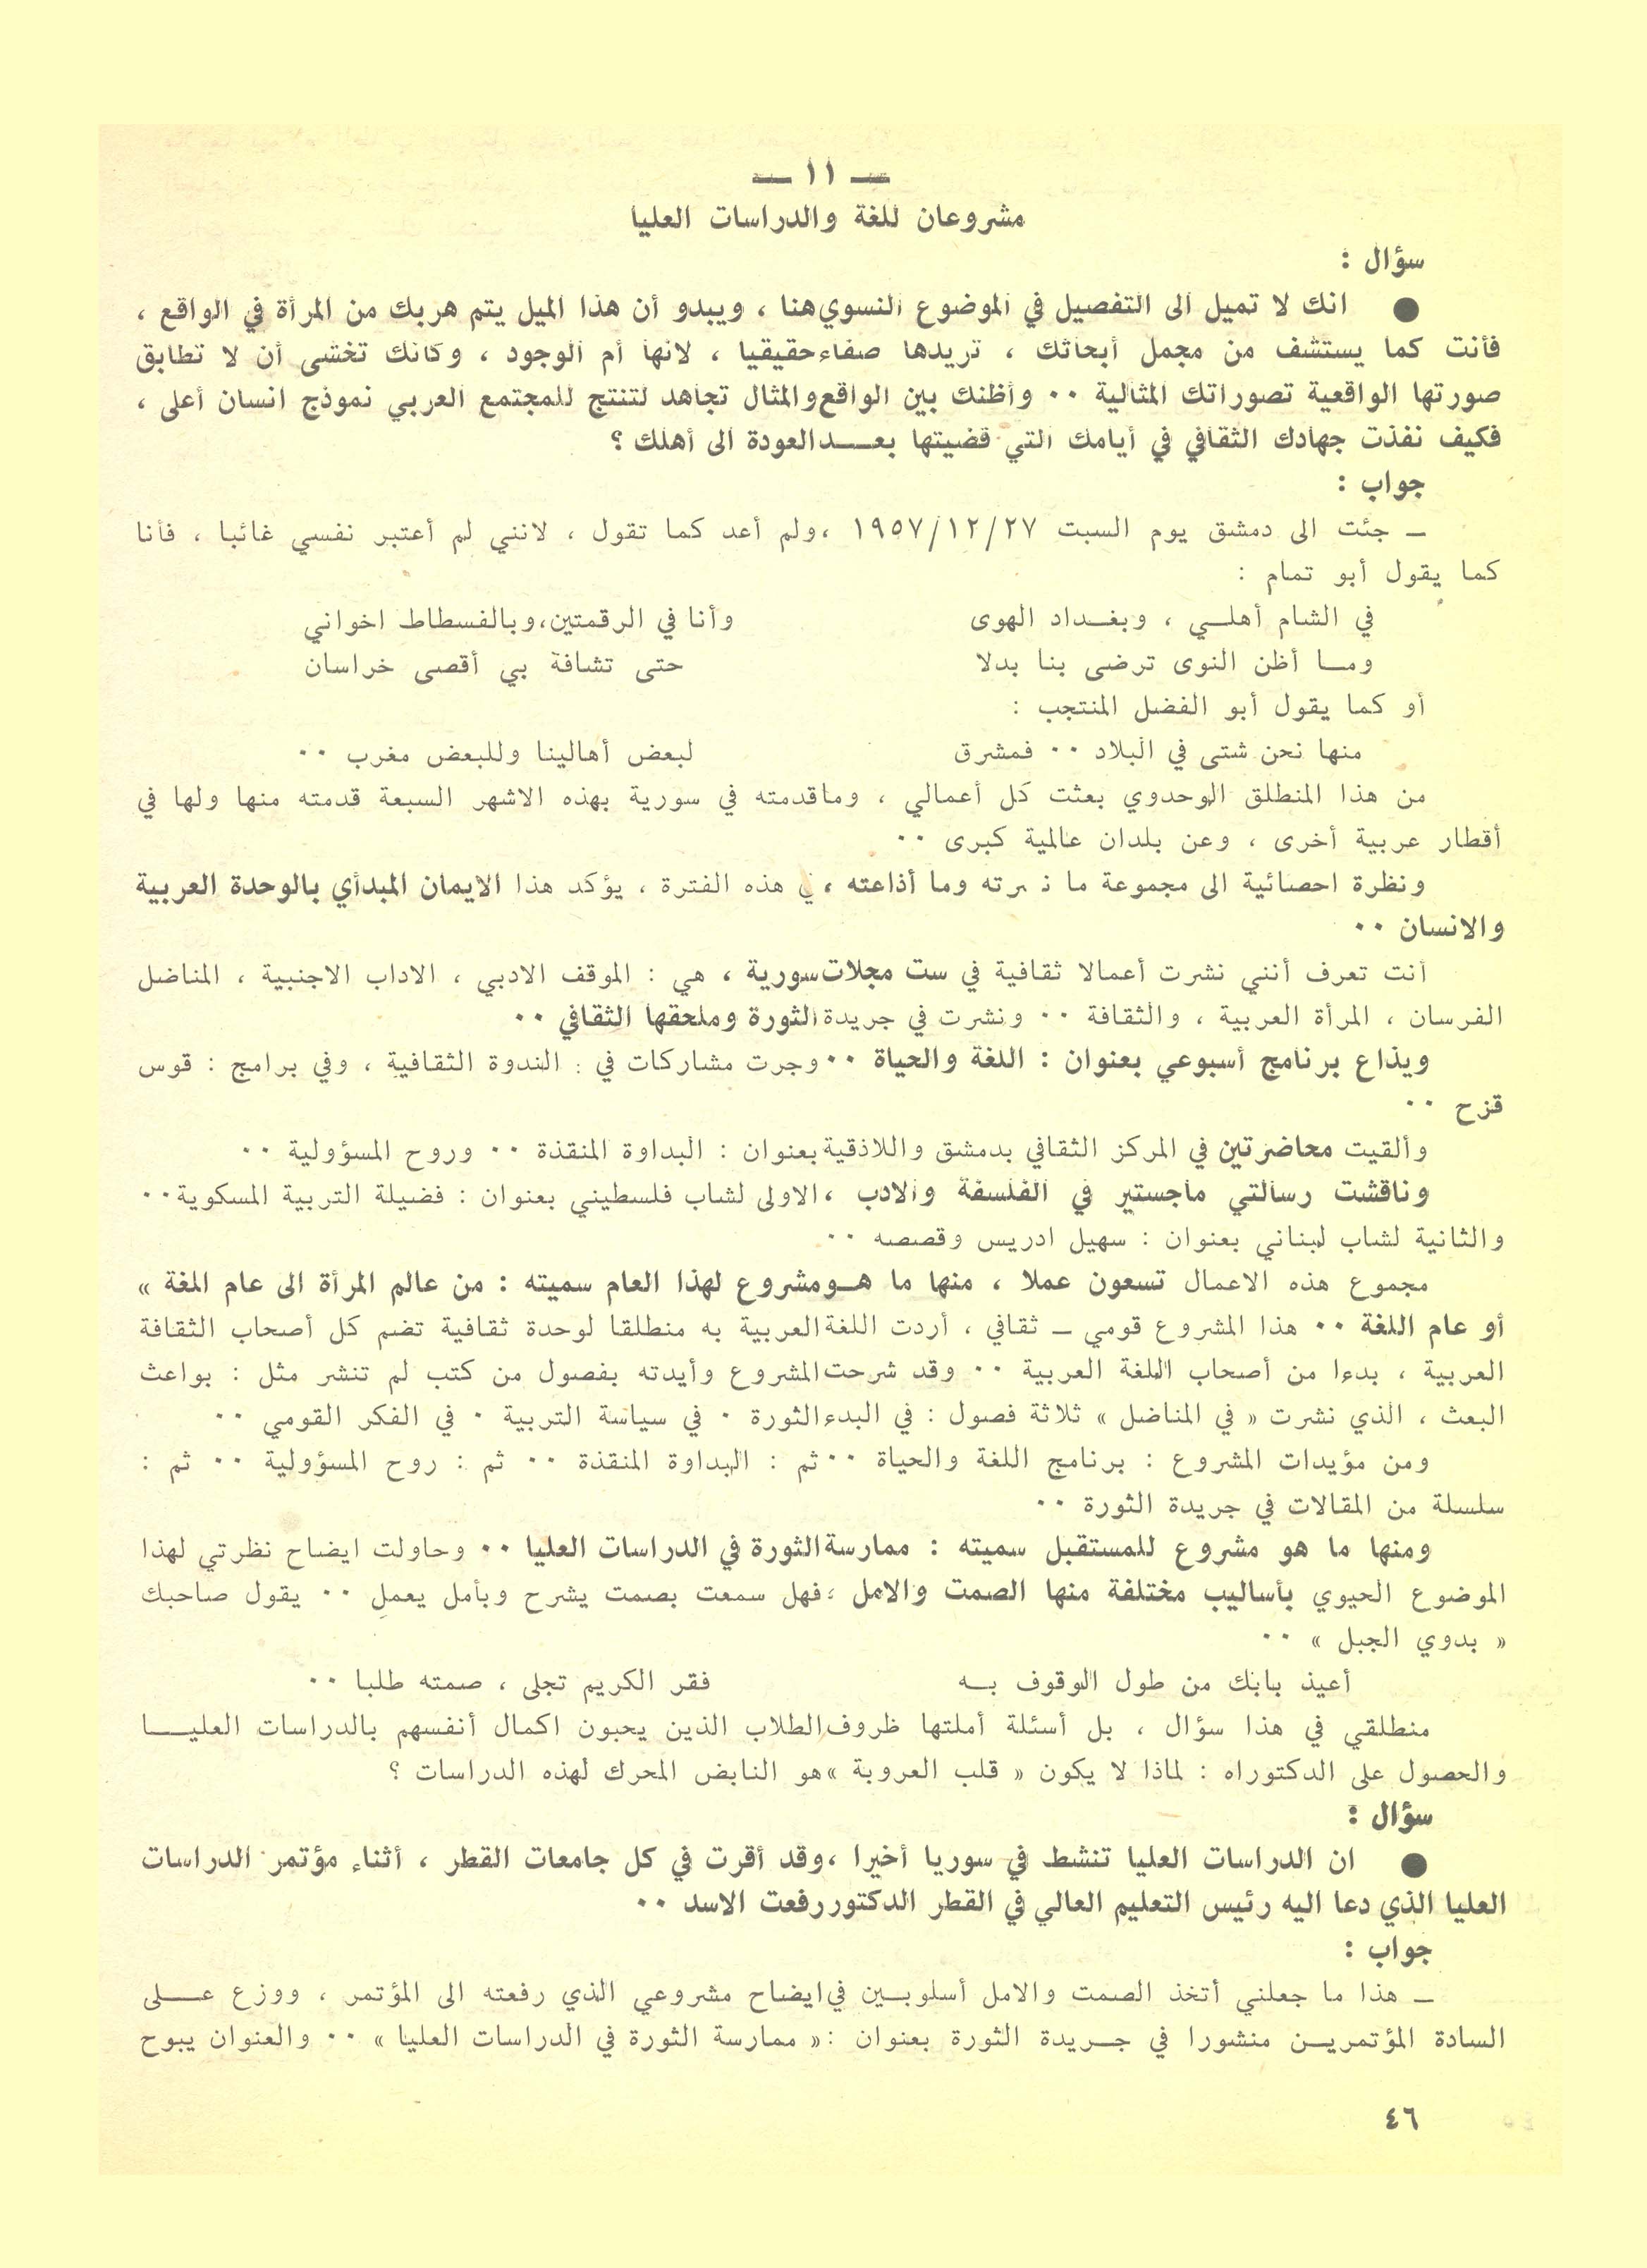 — ١١ —
مشروعان للغة والدراسات العليا
سؤال :
● انك لا تميل الى التفصيل في الموضوع النسوي هنا ، ويبدو أن هذا الميل يتم هربك من المرأة في الواقع ،
فأنت كما يستشف من مجمل أبحاثك ، تريدها صفاء حقيقيا ، لانها أم الوجود ، وكانك تخشى أن لا تطابق
صورتها الواقعية تصوراتك المثالية ٠٠ وأظنك بين الواقع والمثال تجاهد لتنتج للمجتمع العربي نموذج انسان أعلى ،
فكيف نفذت جهادك الثقافي في أيامك التي قضيتها بعـــد العودة الى أهلك ؟
جواب :
ــ جئت الى دمشق يوم السبت ١٩٥٧/١٢/٢٧ ، ولم أعد كما تقول ، لانني لم أعتبر نفسي غائبا ، فأنا
كما يقول أبو تمام :
في الشام أهلــي ، وبغــداد الهوى وأنا في الرقمتين ، وبالفسطاط اخواني
ومــا أظن النوى ترضى بنا بدلا حتى تشافة بي أقصى خراسان
أو كما يقول أبو الفضل المنتجب :
منها نحن شتى في البلاد ٠٠ فمشرق لبعض أهالينا وللبعض مغرب ٠٠
من هذا المنطلق الوحدوي بعثت كل أعمالي ، وماقدمته في سورية بهذه الاشهر السبعة قدمته منها ولها في
أقطار عربية أخرى ، وعن بلدان عالمية كبرى ٠٠
ونظرة احصائية الى مجموعة ما وما أذاعته ، هذه الفترة ، يؤكد هذا الايمان المبدأي بالوحدة العربية
والانسان ٠٠
أنت تعرف أنني نشرت أعمالا ثقافية في ست مجلات سورية ، هي : الموقف الادبي ، الاداب الاجنبية ، المناضل
الفرسان ، المرأة العربية ، والثقافة ٠٠ ونشرت في جريدة الثورة وملحقها الثقافي ٠٠
ويذاع برنامج أسبوعي بعنوان : اللغة والحياة ٠٠ وجرت مشاركات في : الندوة الثقافية ، وفي برامج : قوس
قزح ٠٠
وألقيت محاضرتين في المركز الثقافي بدمشق واللاذقية بعنوان : البداوة المنقذة ٠٠ وروح المسؤولية ٠٠
وناقشت رسالتي ماجستير في الفلسفة والادب ، الاولى لشاب فلسطيني بعنوان : فضيلة التربية المسكوية ٠٠
والثانية لشاب لبناني بعنوان : سهيل ادريس وقصصه ٠٠
مجموع هذه الاعمال تسعون عملا ، منها ما هــو مشروع لهذا العام سميته : من عالم المرأة الى عام المغة »
أو عام اللغة ٠٠ هذا المشروع قومي ــ ثقافي ، أردت اللغة العربية به منطلقا لوحدة ثقافية تضم كل أصحاب الثقافة
العربية ، بدءا من أصحاب اللغة العربية ٠٠ وقد شرحت المشروع وأيدته بفصول من كتب لم تنشر مثل : بواعث
البعث ، الذي نشرت « في المناضل » ثلاثة فصول : في البدء الثورة ٠ في سياسة التربية ٠ في الفكر القومي ٠٠
ومن مؤيدات المشروع : برنامج اللغة والحياة ٠٠ ثم : البداوة المنقذة ٠٠ ثم : روح المسؤولية ٠٠ ثم :
سلسلة من المقالات في جريدة الثورة ٠٠
ومنها ما هو مشروع للمستقبل سميته : ممارسة الثورة في الدراسات العليا ٠٠ وحاولت ايضاح نظرتي لهذا
الموضوع الحيوي بأساليب مختلفة منها الصمت والامل ؛ فهل سمعت بصمت يشرح وبأمل يعمل ٠٠ يقول صاحبك
« بدوي الجبل » ٠٠
أعيذ بابك من طول الوقوف بــه فقر الكريم تجلى ، صمته طلبا ٠٠
منطلقي في هذا سؤال ، بل أسئلة أملتها ظروف الطلاب الذين يحبون اكمال أنفسهم بالدراسات العليـــا
والحصول على الدكتوراه : لماذا لا يكون « قلب العروبة » هو النابض المحرك لهذه الدراسات ؟
سؤال :
● ان الدراسات العليا تنشط في سوريا أخيرا ، وقد أقرت في كل جامعات القطر ، أثناء مؤتمر الدراسات
العليا الذي دعا اليه رئيس التعليم العالي في القطر الدكتور رفعت الاسد ٠٠
جواب :
ــ هذا ما جعلني أتخذ الصمت والامل أسلوبــين في ايضاح مشروعي الذي رفعته الى المؤتمر ، ووزع عـــلى
السادة المؤتمريــن منشورا في جــريدة الثورة بعنوان : « ممارسة الثورة في الدراسات العليا » ٠٠ والعنوان يبوح
٤٦